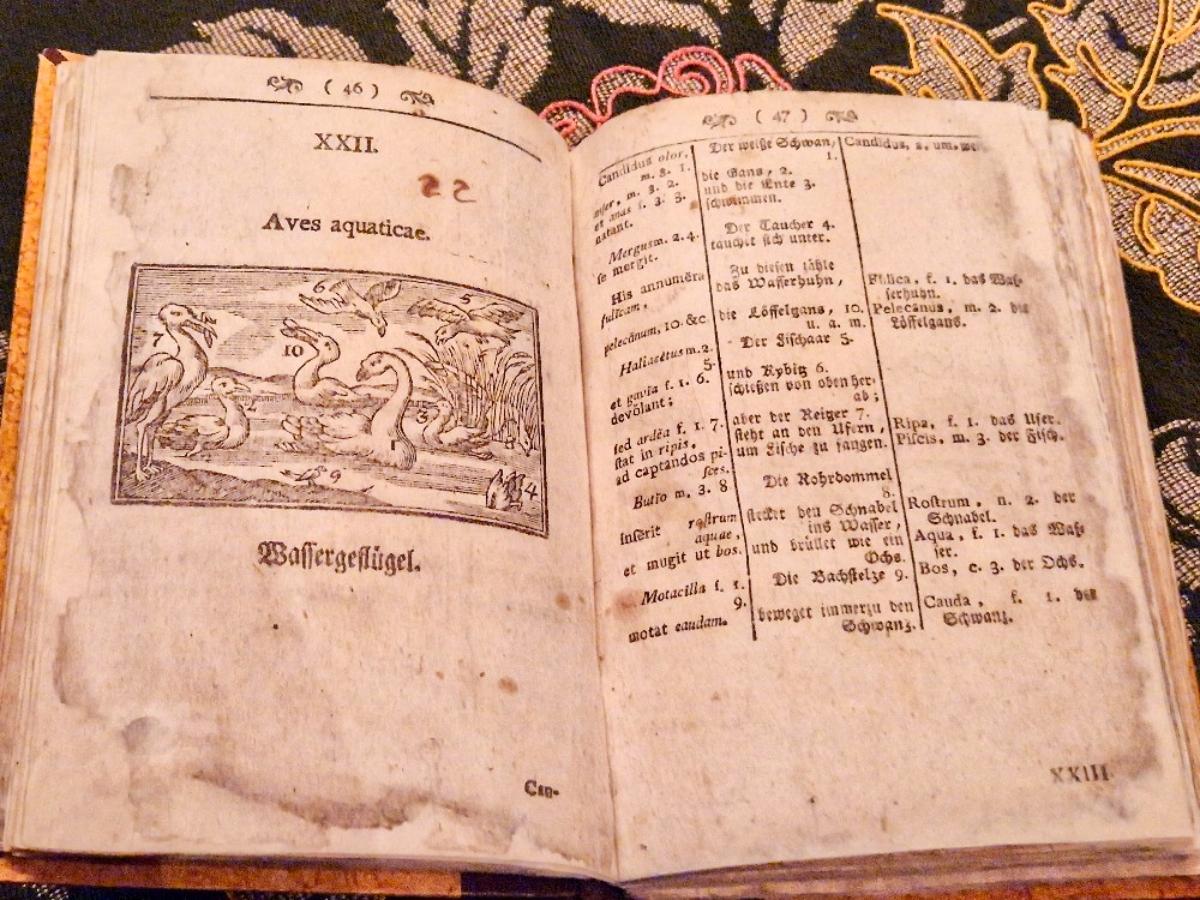 ( 46 )
XXII.
22
Aves aquaticae.
6
5
7
10
2
3
9
4
Wassergeflügel.
Can-
( 47 )
Candidus olor,
m. 3. 1.
anser, m. 3. 2.
et anas f. 3. 3.
natant.
Mergus m. 2. 4.
se mergit.
His annumĕra
fulicam,
pelecānum, 10. &c.
Haliaeëtus m. 2.
5.
et gavia f. 1. 6.
devŏlant;
sed ardĕa f. 1. 7.
stat in ripis,
ad captandos pi-
sces.
Butio m. 3. 8
insĕrit rostrum
aquae,
et mugit ut bos.
Motacilla f. 1.
9.
motat caudam.
Der weiße Schwan,
1.
die Gans, 2.
und die Ente 3.
schwimmen.
Der Taucher 4.
tauchet sich unter.
Zu diesen zähle
das Wasserhuhn,
die Löffelgans, 10.
u. a. m.
Der Fischaar 5.
und Kybitz 6.
schießen von oben her-
ab;
aber der Reiger 7.
steht an den Ufern,
um Fische zu fangen.
Die Rohrdommel
8.
stecket den Schnabel
ins Wasser,
und brüllet wie ein
Ochs.
Die Bachstelze 9.
beweget immerzu den
Schwanz.
Candidus, a. um. weiß
Fulica, f. 1. das Was-
serhuhn.
Pelecānus, m. 2. die
Löffelgans.
Ripa, f. 1. das Ufer.
Piscis, m. 3. der Fisch.
Rostrum, n. 2. der
Schnabel.
Aqua, f. 1. das Was-
ser.
Bos, c. 3. der Ochs.
Cauda, f. 1. der
Schwanz.
XXIII.